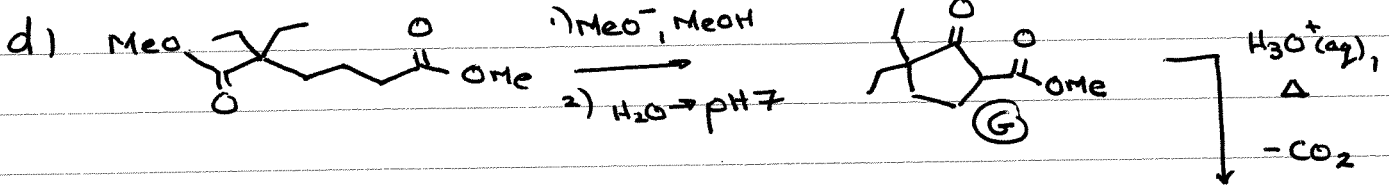 d) MeO O OMe O
1) MeO⁻, MeOH
2) H₂O → pH 7
O O OMe
G
H₃O⁺(aq),
Δ
- CO₂